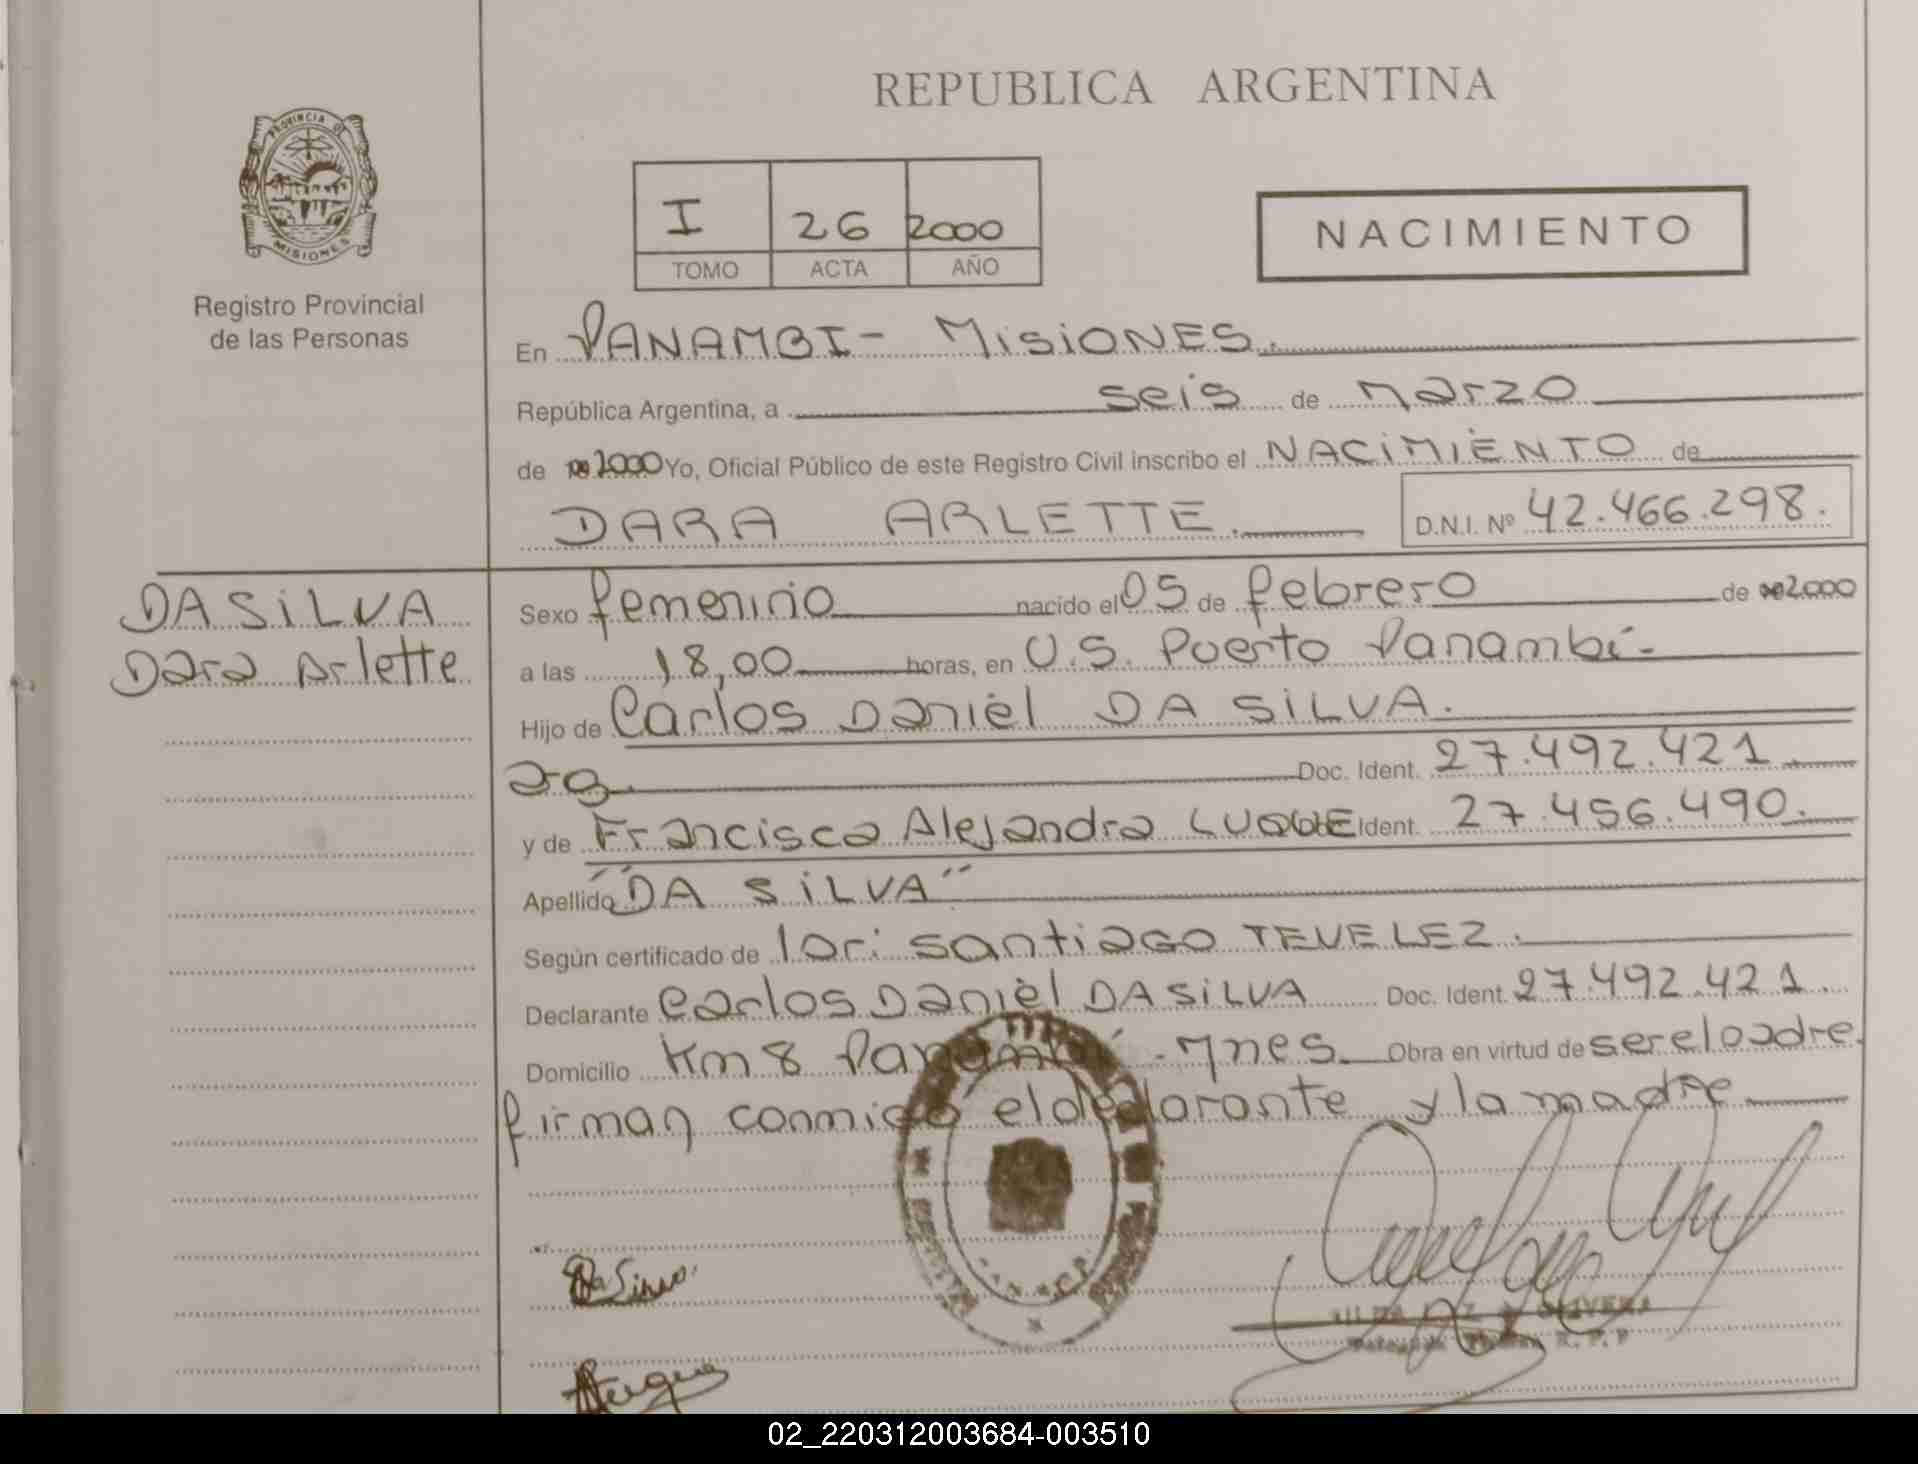 REPUBLICA ARGENTINA
PROVINCIA DE
MISIONES
Registro Provincial
de las Personas
I 26 2000
TOMO ACTA AÑO
NACIMIENTO
En PANAMBI - MISIONES.
República Argentina, a seis de Marzo
de 2000 Yo, Oficial Público de este Registro Civil inscribo el NACIMIENTO de
DARA ARLETTE. D.N.I. Nº 42.466.298.
DA SILVA
Dara Arlette
Sexo femenino nacido el 05 de febrero de 2000
a las 18,00 horas, en U.S. Puerto Panambí -
Hijo de Carlos Daniel DA SILVA.
arg. Doc. Ident. 27.492.421
y de Francisca Alejandra LUQUE Ident. 27.456.490.
Apellido "DA SILVA"
Según certificado de Iori Santiago TEVELEZ.
Declarante Carlos Daniel DA SILVA Doc. Ident. 27.492.421.
Domicilio Km 8 Panambí - Mnes. Obra en virtud de ser el padre.
firman conmigo el declarante y la madre
OLIVERA
R.P.P
02_220312003684-003510